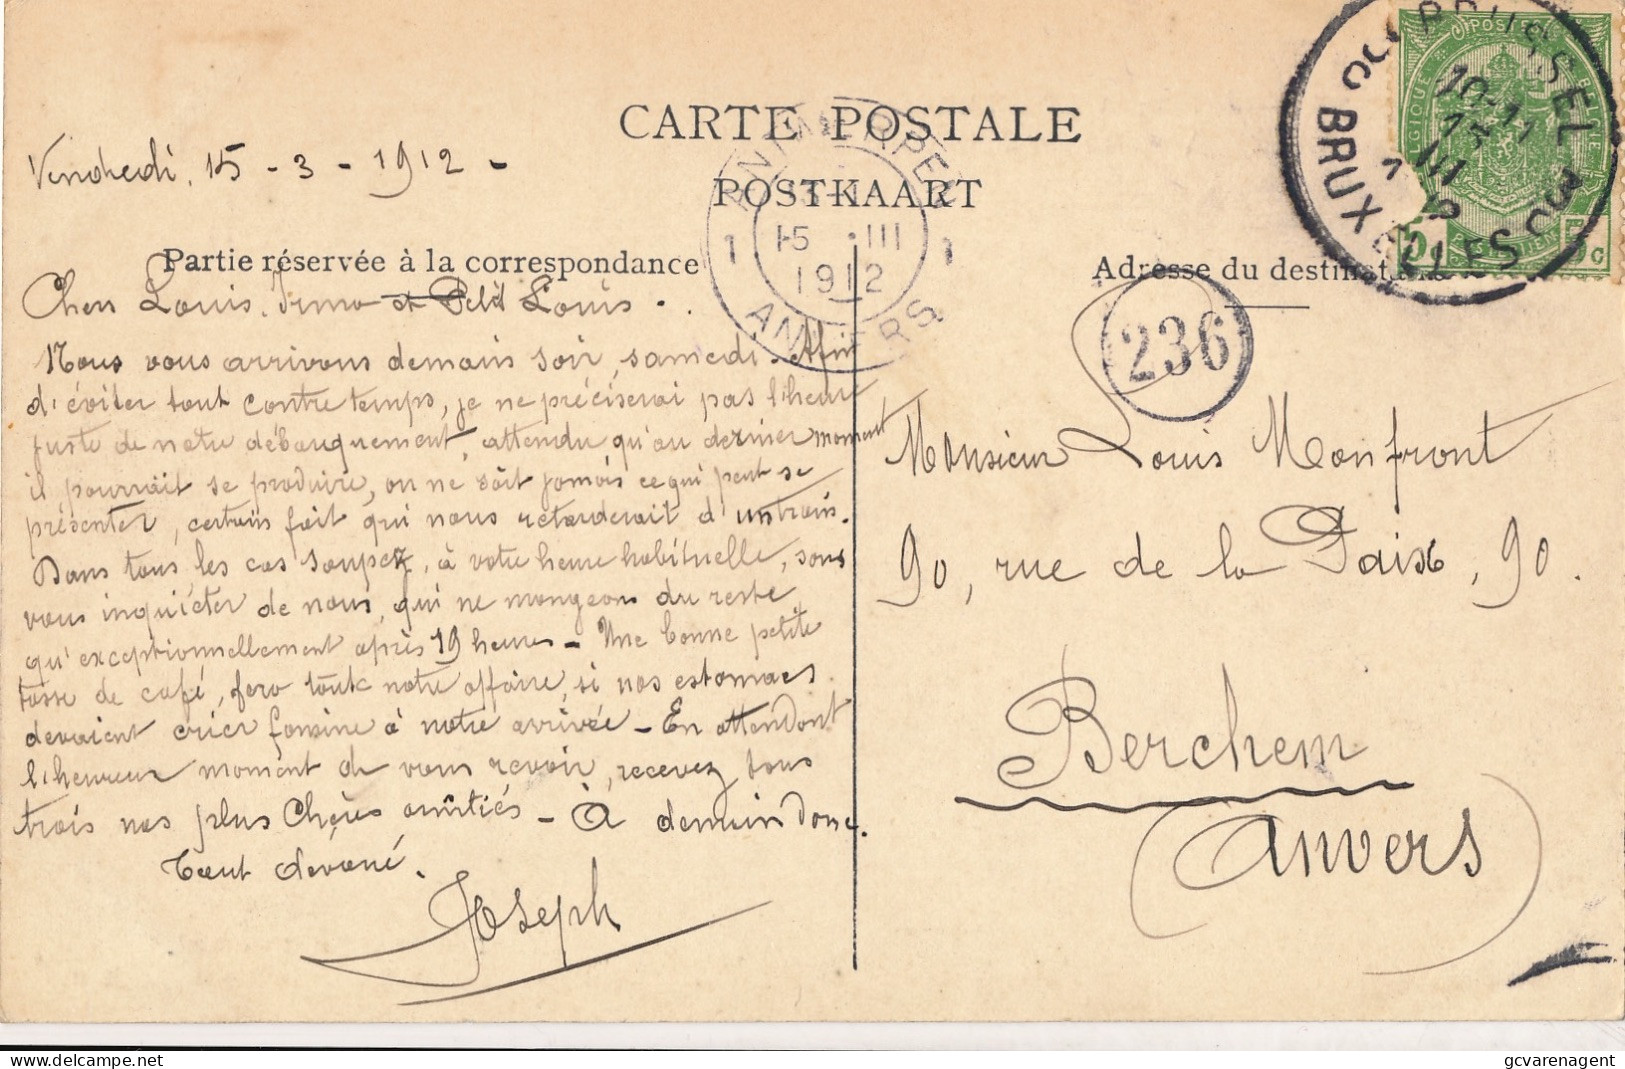 CARTE POSTALE
POSTKAART
Vendredi, 15 - 3 - 1912 -
Partie réservée à la correspondance
Adresse du destinataire
Chers Louis, Irma et Petit Louis.
Nous vous arrivons demain soir, samedi. Afin
d'éviter tout contre temps, je ne préciserai pas l'heure
juste de notre débarquement, attendu qu'au dernier moment
il pourrait se produire, on ne sait jamais ce qui peut se
présenter, certains fait qui nous retarderait d'un train.
Dans tous les cas soupez, à votre heure habituelle, sans
vous inquiéter de nous, qui ne mangeons du reste
qu'exceptionnellement après 19 heures - Une bonne petite
tasse de café, fera toute notre affaire, si nos estomacs
devraient crier famine à notre arrivée - En attendant
l'heureux moment de vous revoir, recevez tous
trois nos plus Chères amitiés - À demain donc.
Tout dévoué.
Joseph
Monsieur Louis Monfront
90, rue de la Paix, 90.
Berchem
(Anvers)
236
ANTWERPEN
1 15 III 1
1912
ANVERS
BRUSSEL
10-11
15 III
BRUXELLES
POSTES
BELGIQUE
BELGIE
5c
gcvarenagent